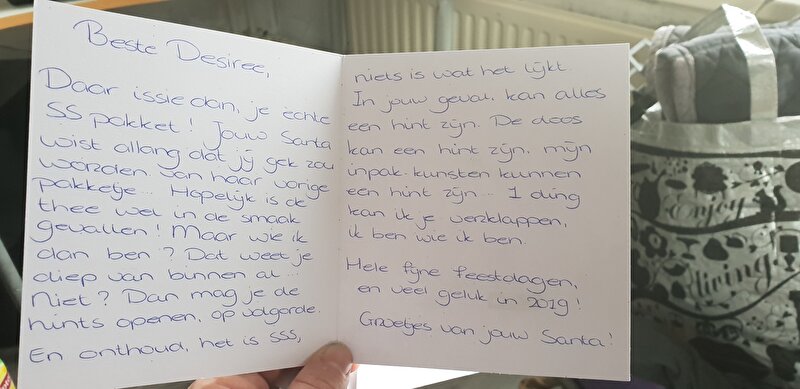 Beste Desiree,
Daar issie dan, je echte
SS pakket! Jouw Santa
wist allang dat jij gek zou
worden van haar vorige
pakketje... Hopelijk is de
thee wel in de smaak
gevallen! Maar wie ik
dan ben? Dat weet je
diep van binnen al...
Niet? Dan mag je de
hints openen, op volgorde.
En onthoud, het is SSS,
niets is wat het lijkt.
In jouw geval, kan alles
een hint zijn. De doos
kan een hint zijn, mijn
inpak-kunsten kunnen
een hint zijn... 1 ding
kan ik je verklappen,
ik ben wie ik ben.
Hele fijne feestdagen,
en veel geluk in 2019!
Groetjes van jouw Santa!
Enjoy
living!